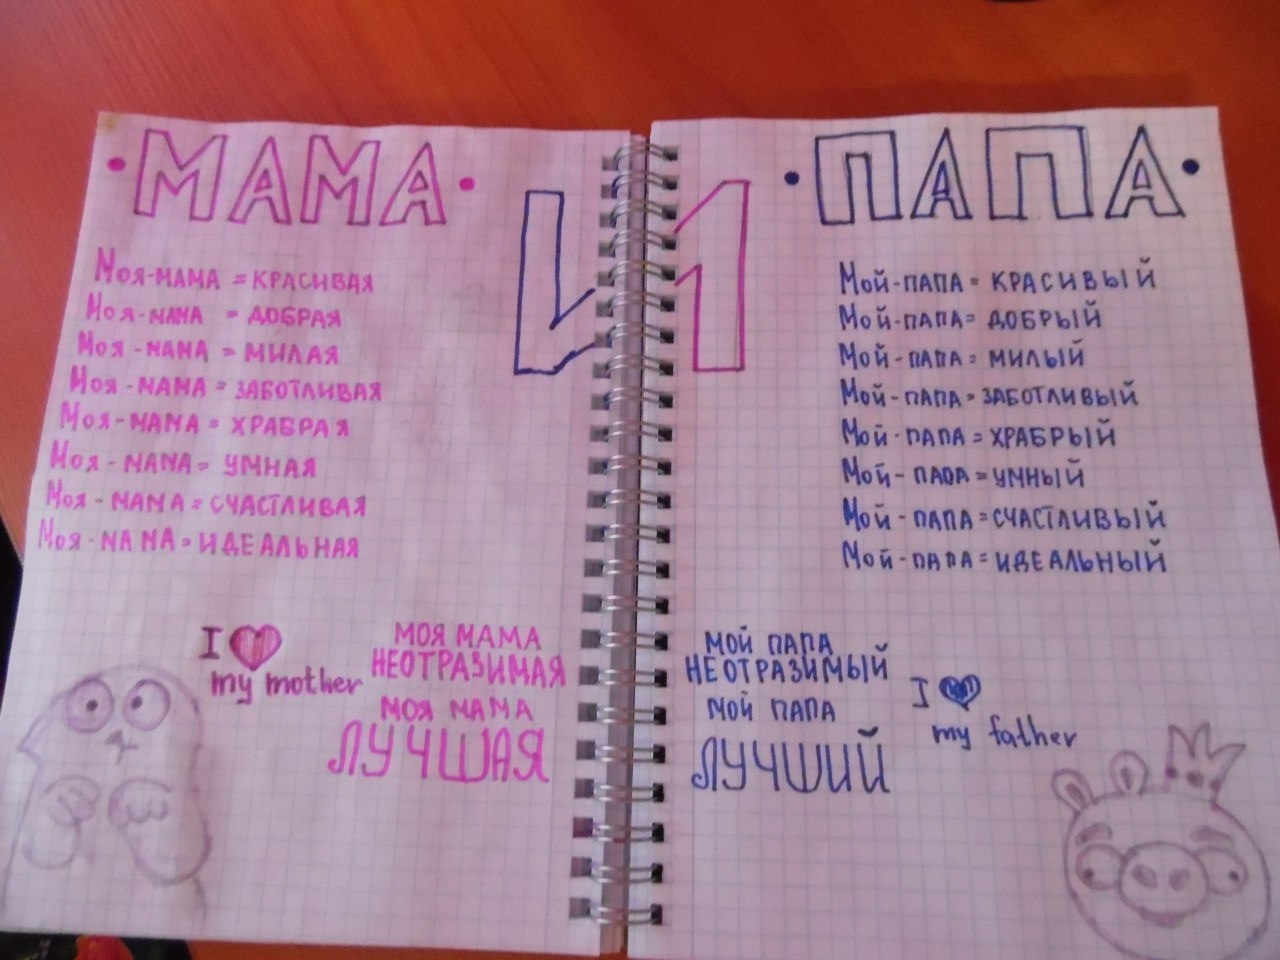 МАМА
И
ПАПА
Моя-мама = красивая
Моя-мама = добрая
Моя-мама = милая
Моя-мама = заботливая
Моя-мама = храбрая
Моя-мама = умная
Моя-мама = счастливая
Моя-мама = идеальная
I ♥
my mother
МОЯ МАМА
НЕОТРАЗИМАЯ
МОЯ МАМА
ЛУЧШАЯ
Мой-папа = красивый
Мой-папа = добрый
Мой-папа = милый
Мой-папа = заботливый
Мой-папа = храбрый
Мой-папа = умный
Мой-папа = счастливый
Мой-папа = идеальный
МОЙ ПАПА
НЕОТРАЗИМЫЙ
МОЙ ПАПА
ЛУЧШИЙ
I ♥
my father